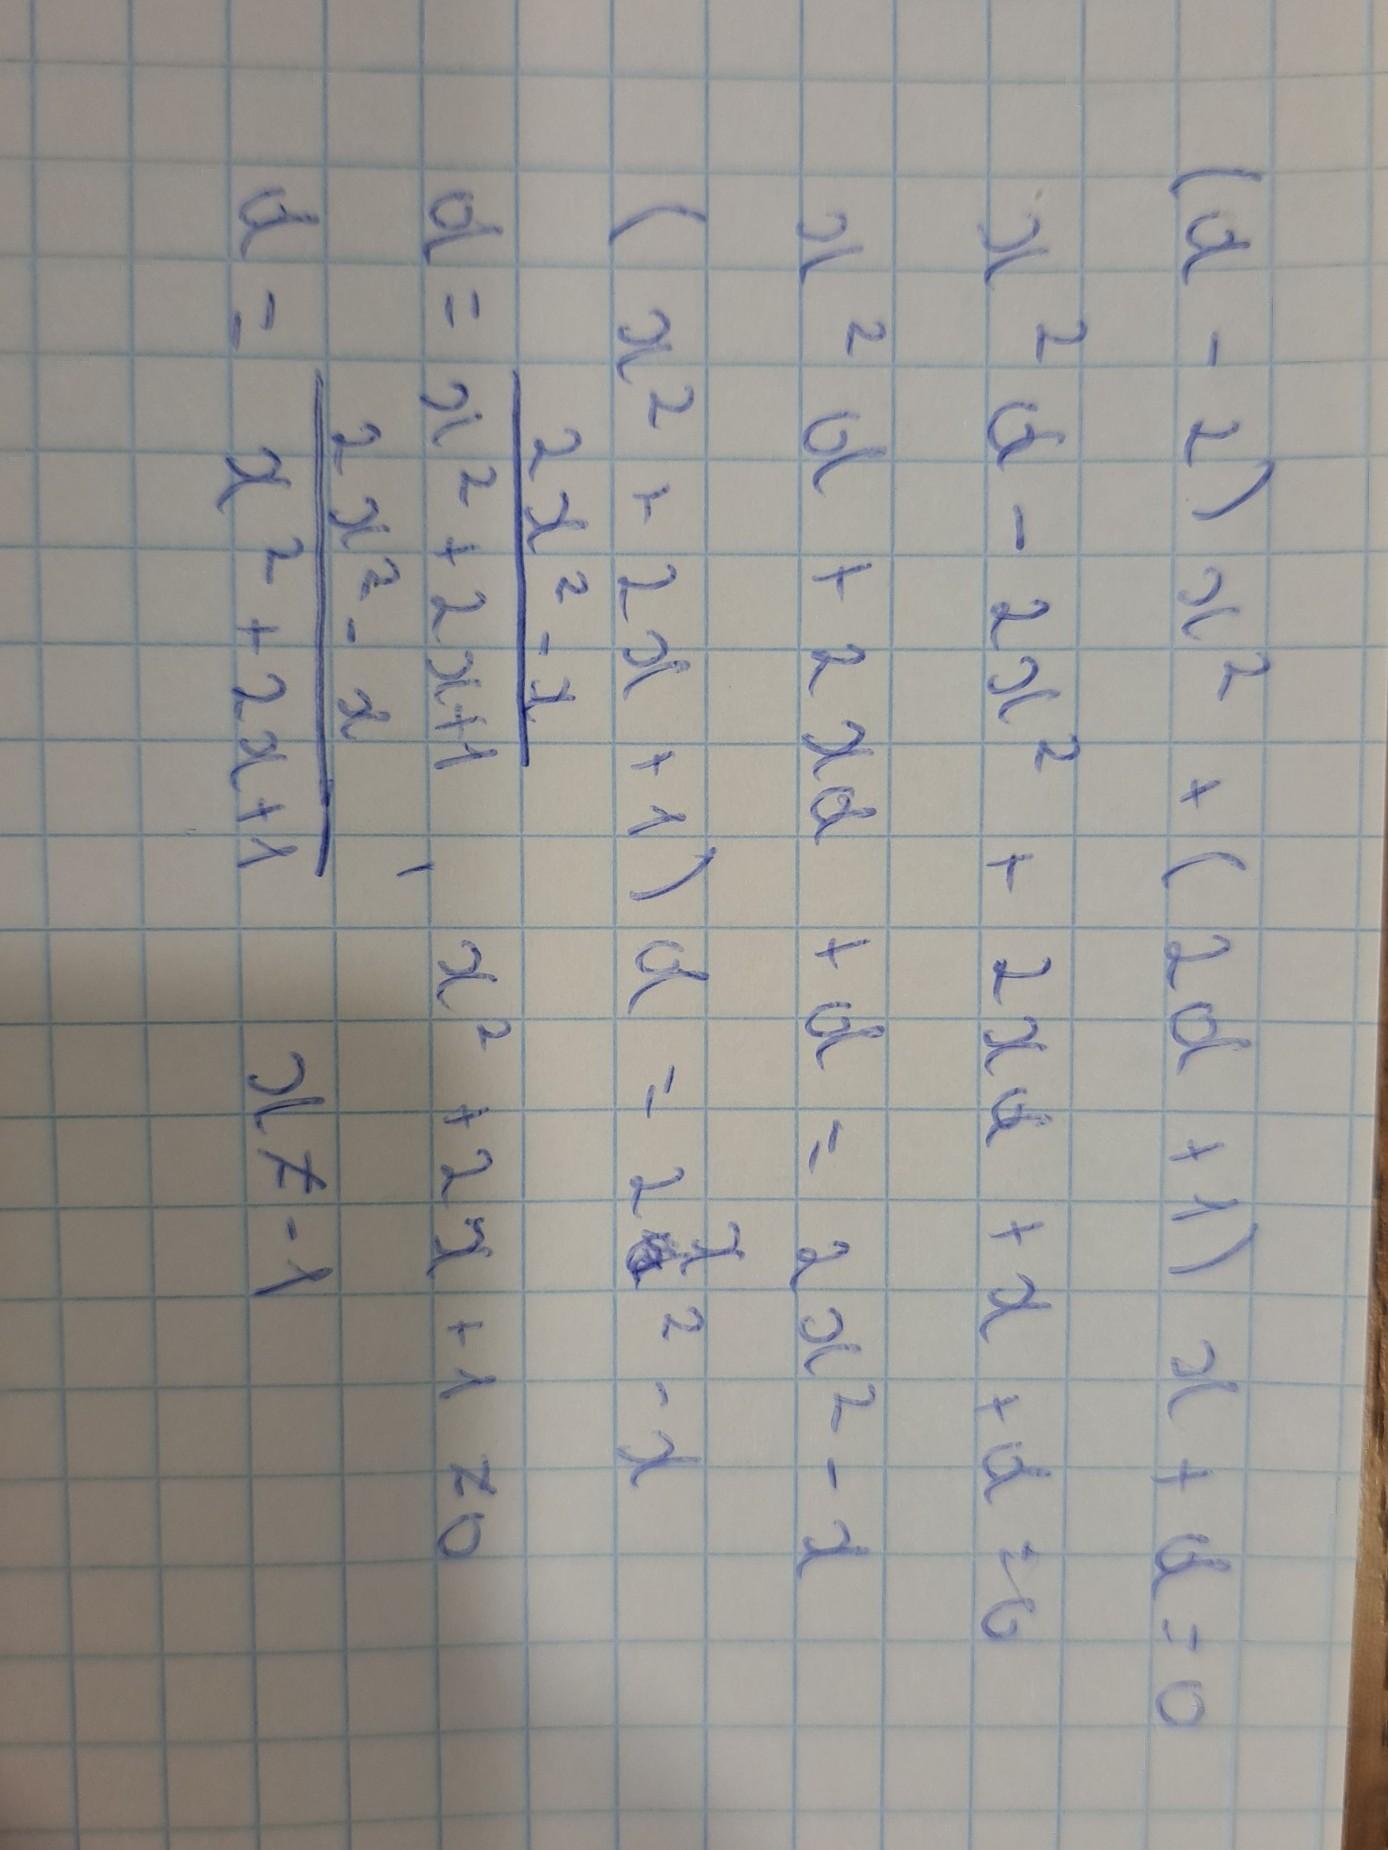 (d - 2) x² + (2d + 1) x + d = 0
x² d - 2x² + 2xd + x + d = 0
x² d + 2xd + d = 2x² - x
(x² + 2x + 1) d = 2x² - x
d = (2x² - x)/(x² + 2x + 1) , x² + 2x + 1 ≠ 0
d = (2x² - x)/(x² + 2x + 1) x ≠ -1